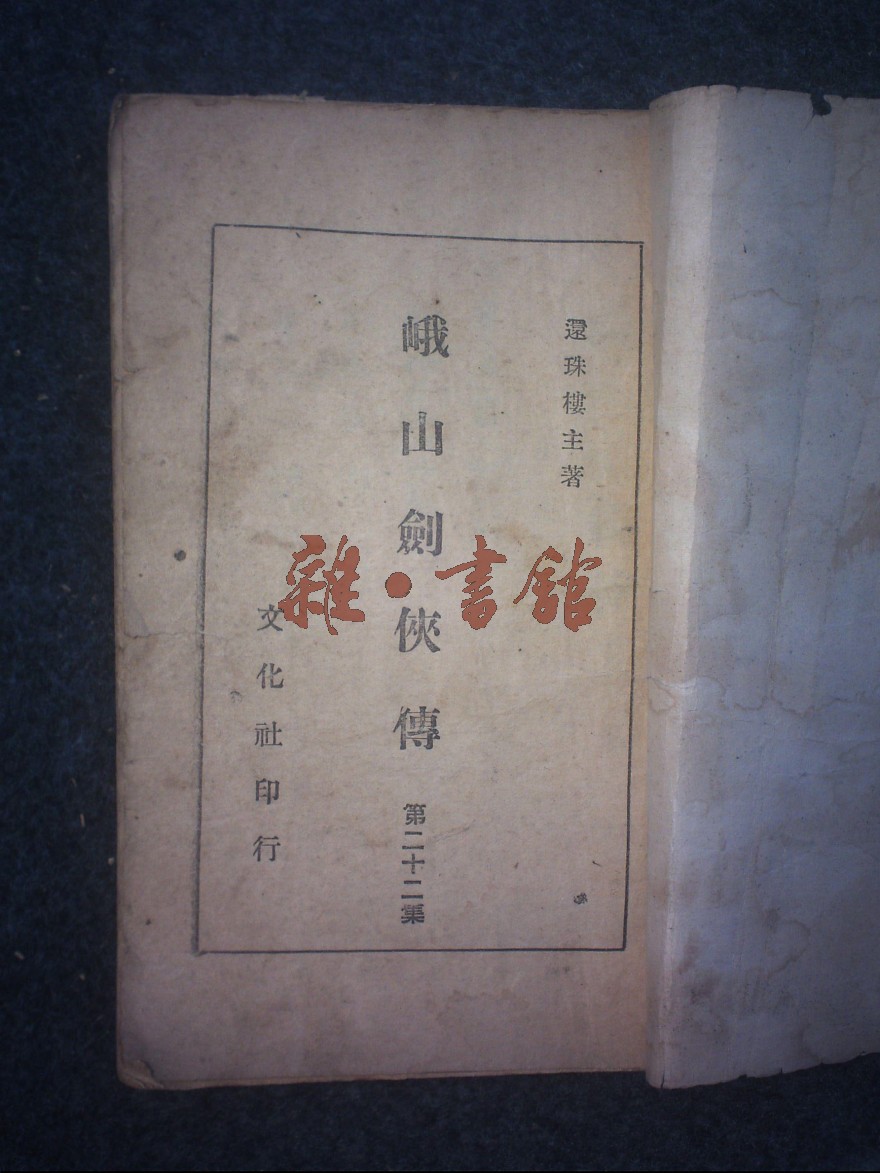 還珠樓主著
峨山劍俠傳
第二十二集
文化社印行
雜·書館